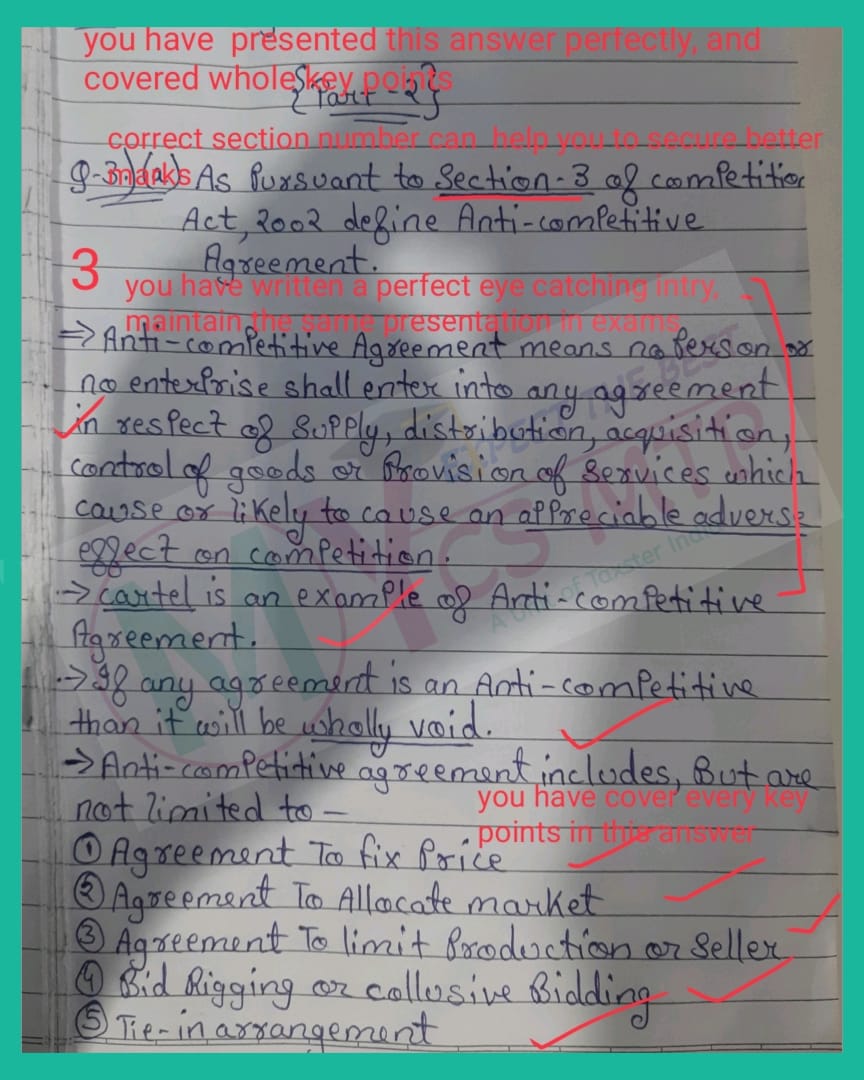 you have presented this answer perfectly, and
covered whole key points
{Part-2}
correct section number can help you to secure better
marks
Q-3)(a) As Pursuant to Section-3 of competition
Act, 2002 define Anti-competitive
Agreement.
3
you have written a perfect eye catching intry,
maintain the same presentation in exams
⇒ Anti-competitive Agreement means no Person or
no enterprise shall enter into any agreement
in respect of Supply, distribution, acquisition,
control of goods or Provision of Services which
cause or likely to cause an appreciable adverse
effect on competition.
→ cartel is an example of Anti-competitive
Agreement.
→ If any agreement is an Anti-competitive
than it will be wholly void.
→ Anti-competitive agreement includes, But are
not limited to —
you have cover every key
points in this answer
① Agreement To fix Price
② Agreement To Allocate market
③ Agreement To limit Production or Seller
④ Bid Rigging or collusive Bidding
⑤ Tie-in arrangement
EXPECT THE BEST
MY CS MTP
A Unit of Taxster India